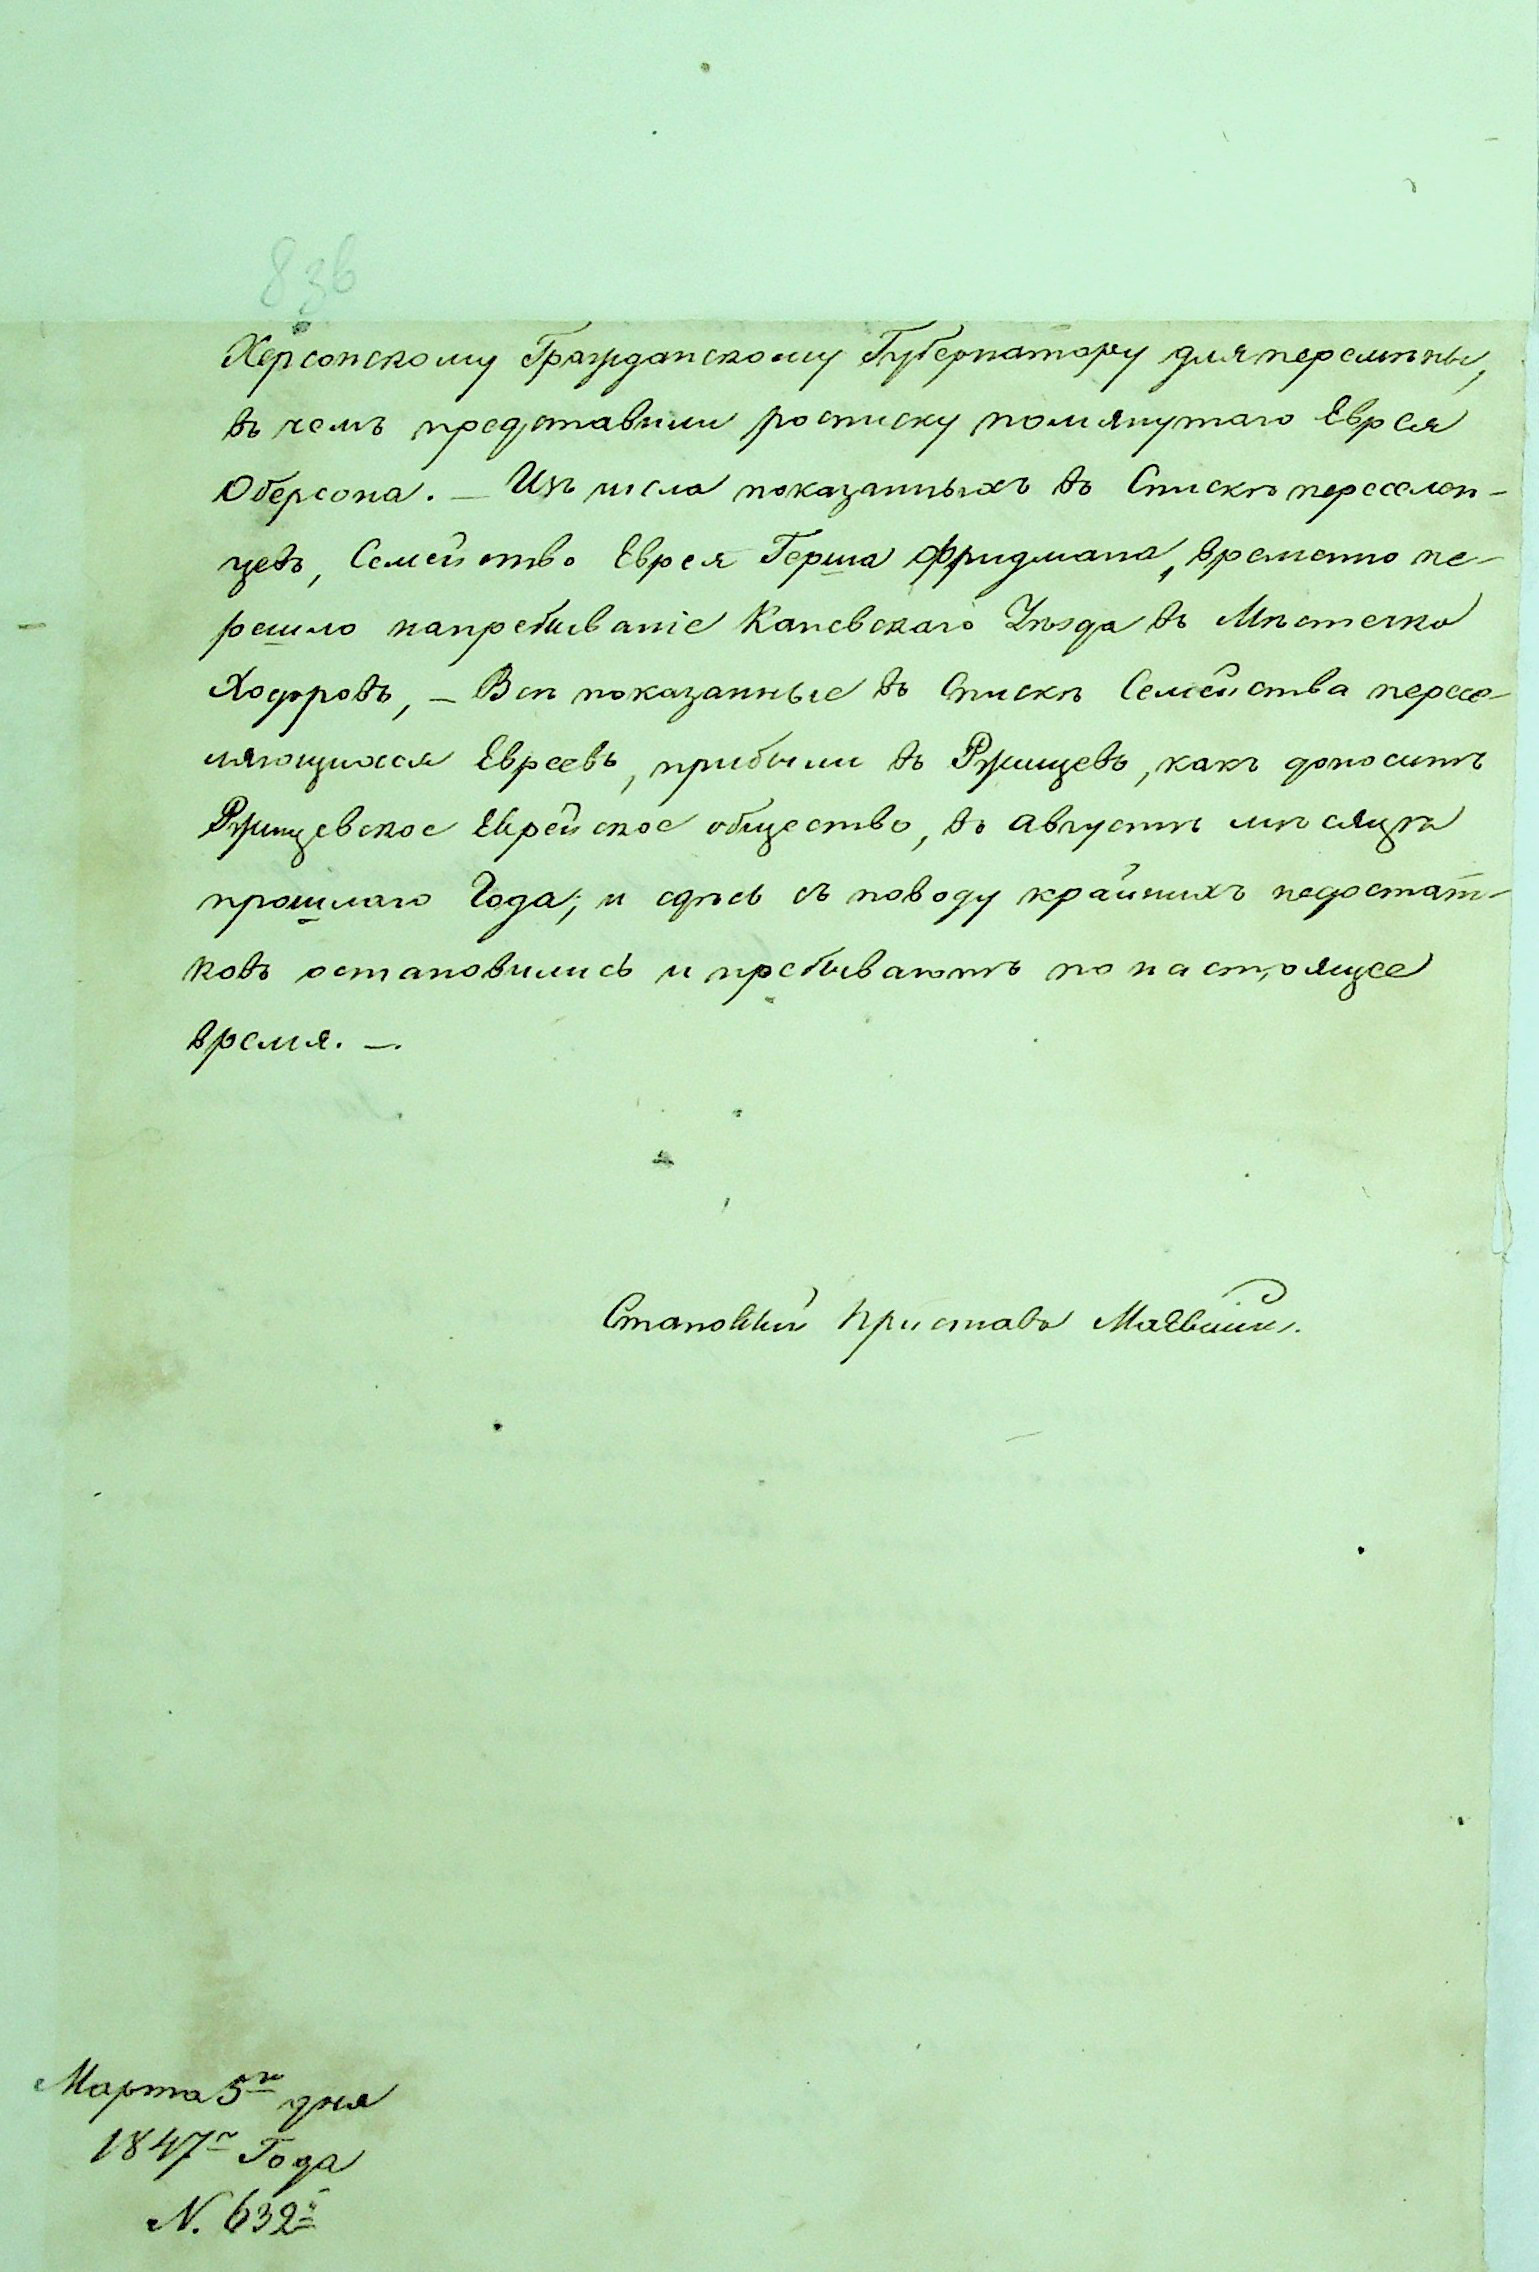 83в
Херсонскому Гражданскому Губернатору для перемѣны,
въ чемъ представили росписку помянутаго Еврея
Оберсона. — Изъ числа показанныхъ въ Спискѣ переселен-
цевъ, Семейство Еврея Герша Фридмана, временно пе-
решло напребываніе Каневскаго Уѣзда въ Мѣстечко
Ходоровъ, — Всѣ показанные въ Спискѣ Семейства пересе-
ляющихся Евреевъ, прибыли въ Ржищевъ, какъ доноситъ
Ржищевское Еврейское общество, въ августѣ мѣсяцѣ
прошлаго Года; и сдѣсь съ поводу крайнихъ недостат-
ковъ остановились и пребываютъ по настоящее
время. —.
Становый Приставъ
Марта 5го дня
1847го Года
N. 632й